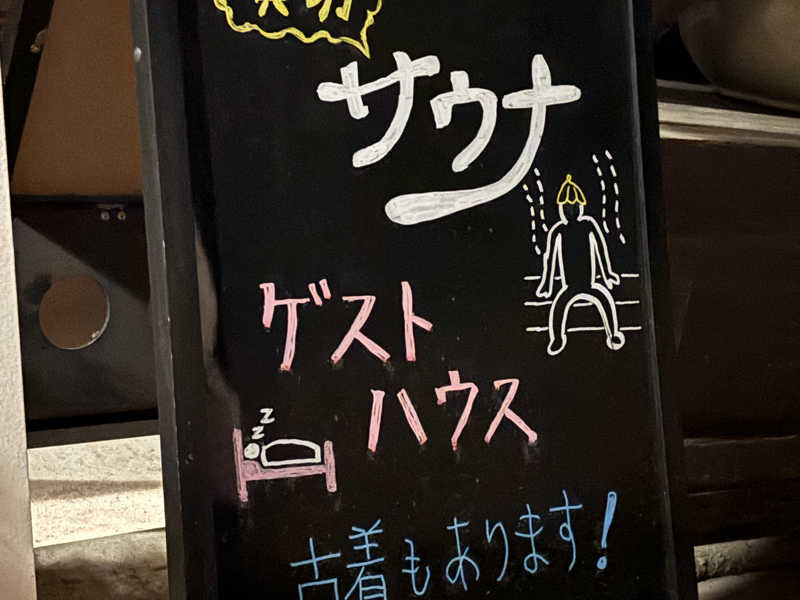 サウナ
ゲスト
ハウス
zz
古着もあります!